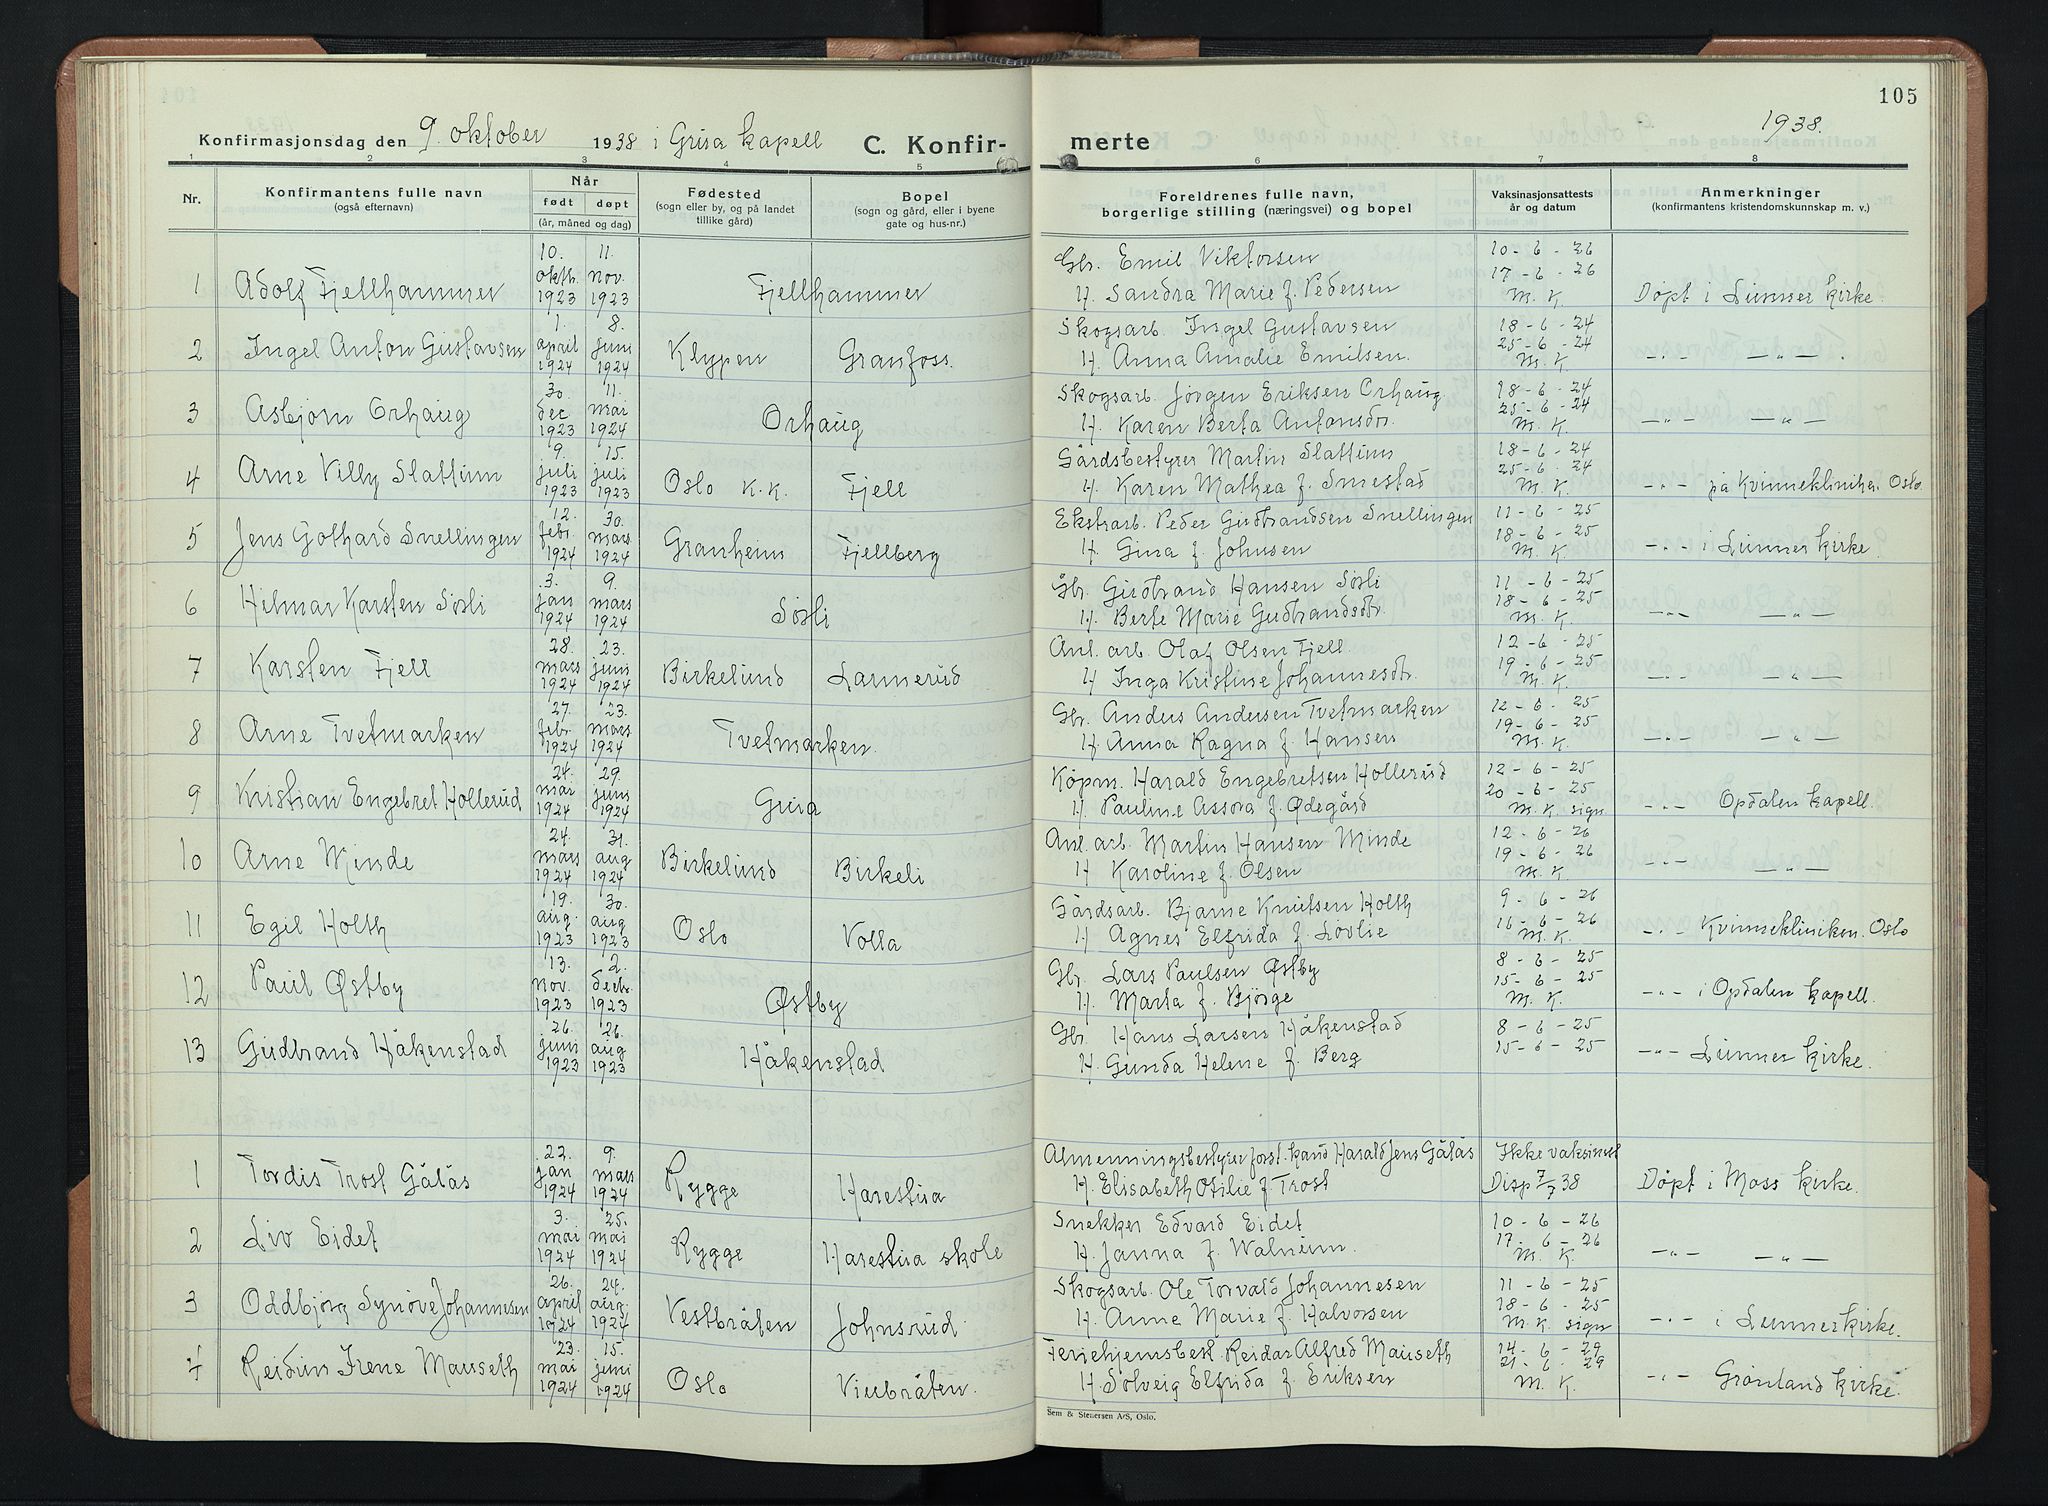 105
Konfirmasjonsdag den 9. oktober 1938 i Grua kapell C. Konfir-
merte 1938.
1 2 3 4 5 6 7 8
Nr. Konfirmantens fulle navn (også efternavn) Når født døpt (år, måned og dag) Fødested (sogn eller by, og på landet tillike gård) Bopel (sogn og gård, eller i byene gate og hus-nr.) Foreldrenes fulle navn, borgerlige stilling (næringsvei) og bopel Vaksinasjonsattests år og datum Anmerkninger (konfirmantens kristendomskunnskap m. v.)
1 Adolf Fjellhammer 10. oktb. 1923 11. nov. 1923 Fjellhammer Gbr. Emil Viktorsen H. Sandra Marie f. Pedersen 10-6-26 17-6-26 M. K. Døpt i Lunner kirke.
2 Ingel Anton Gustavsen 1. april 1924 8. juni 1924 Klypen Granfoss. Skogsarb. Ingel Gustavsen H. Anna Amalie Emilsen. 18-6-24 25-6-24 M. K. —"— —"— .
3 Asbjørn Orhaug 30. dec 1923 11. mai 1924 Orhaug Skogsarb. Jørgen Eriksen Orhaug. H. Karen Berta Antonsdtr. 18-6-24 25-6-24 M. K. —"— —"—
4 Arne Villy Slattum 9. juli 1923 15. juli 1923 Oslo K.K. Fjell Gårdsbestyrer Martin Slattum H. Karen Mathea f. Smestad 18-6-24 25-6-24 M. K. -"- på Kvinneklinikken. Oslo.
5 Jens Gothard Snellingen 12. febr. 1924 30. mars 1924 Granheim Fjellberg Ekstrarb. Peder Gudbrandsen Snellingen H. Gina f. Johnsen 11-6-25 18-6-25 M. K. -"- i Lunner kirke.
6 Hilmar Karsten Søsli 3. jan 1924 9. mars 1924 Søsli Gbr. Gudbrand Hansen Søsli H. Berte Marie Gudbrandsdtr. 11-6-25 18-6-25 M. K. —"— —"—
7 Karsten Fjell 28. mars 1924 23. juni 1924 Birkelund Lannerud Anl. arb. Olaf Olsen Fjell. H Inga Kristine Johannesdtr. 12-6-25 19-6-25 M. K. —"— —"—
8 Arne Tvetmarken 27. febr. 1924 23. mars 1924 Tvetmarken. Gbr. Anders Andersen Tvetmarken H. Anna Ragna f. Hansen 12-6-25 19-6-25 M. K. —"— —"—
9 Kristian Engebret Hollerud 24. mai 1924 29. juni 1924 Grua Kjøpm. Harald Engebretsen Hollerud H. Pauline Assora f. Ødegård 12-6-25 20-6-25 M. K. sign -"- Opdalen kapell.
10 Arne Minde 24. mars 1924 31. aug 1924 Birkelund Birkeli Anl. arb. Martin Hansen Minde H Karoline f. Olsen 12-6-26 19-6-26 M. K. -"- —"—
11 Egil Holth 19. aug. 1923 30. aug 1923 Oslo Volla Gårdsarb. Bjarne Knutsen Holth H Agnes Elfrida f. Lovlie 9-6-26 16-6-26 M. K. -"- Kvinneklinikken. Oslo
12 Paul Østby 13. nov. 1923 2. decbr. 1923 Østby Gbr. Lars Paulsen Østby H. Marta f. Bjørge 8-6-25 15-6-25 M. K. -"- i Opdalen kapell.
13 Gudbrand Håkenstad 26. juni 1923 26. aug 1923 Håkenstad Gbr. Hans Larsen Håkenstad H. Gunda Helene f. Berg 8-6-25 15-6-25 -"- Lunner kirke.
1 Tordis Trost Gålås 22. jan 1924 9. mars 1924 Rygge Harestua Almenningsbestyrer forst. kand Harald Jens Gålås H. Elisabeth Otilie f Trost Ikke vaksinert Disp 7/7 38 Døpt i Moss kirke.
2 Liv Eidet 3. mai 1924 25. mai 1924 Rygge Harestua skole Snekker Edvard Eidet H. Janna f. Walneim. 10-6-26 17-6-26 M. K. —"— —"—
3 Oddbjørg Synøve Johannesen 26. april 1924 24. aug. 1924 Vestbråten Johnsrud Skogsarb. Ole Torvald Johannesen H. Anne Marie f. Halvorsen 11-6-25 18-6-25 M. K. sign -"- i Lunner kirke.
4 Reidun Irene Mauseth 23. mai 1924 15. juni 1924 Oslo Viubråten. Feriehjemsbest. Reidar Alfred Mauseth H. Solveig Elfrida f. Eriksen 14-6-29 21-6-29 M. K. -"- Grønland kirke.
Sem & Stenersen A/S, Oslo.